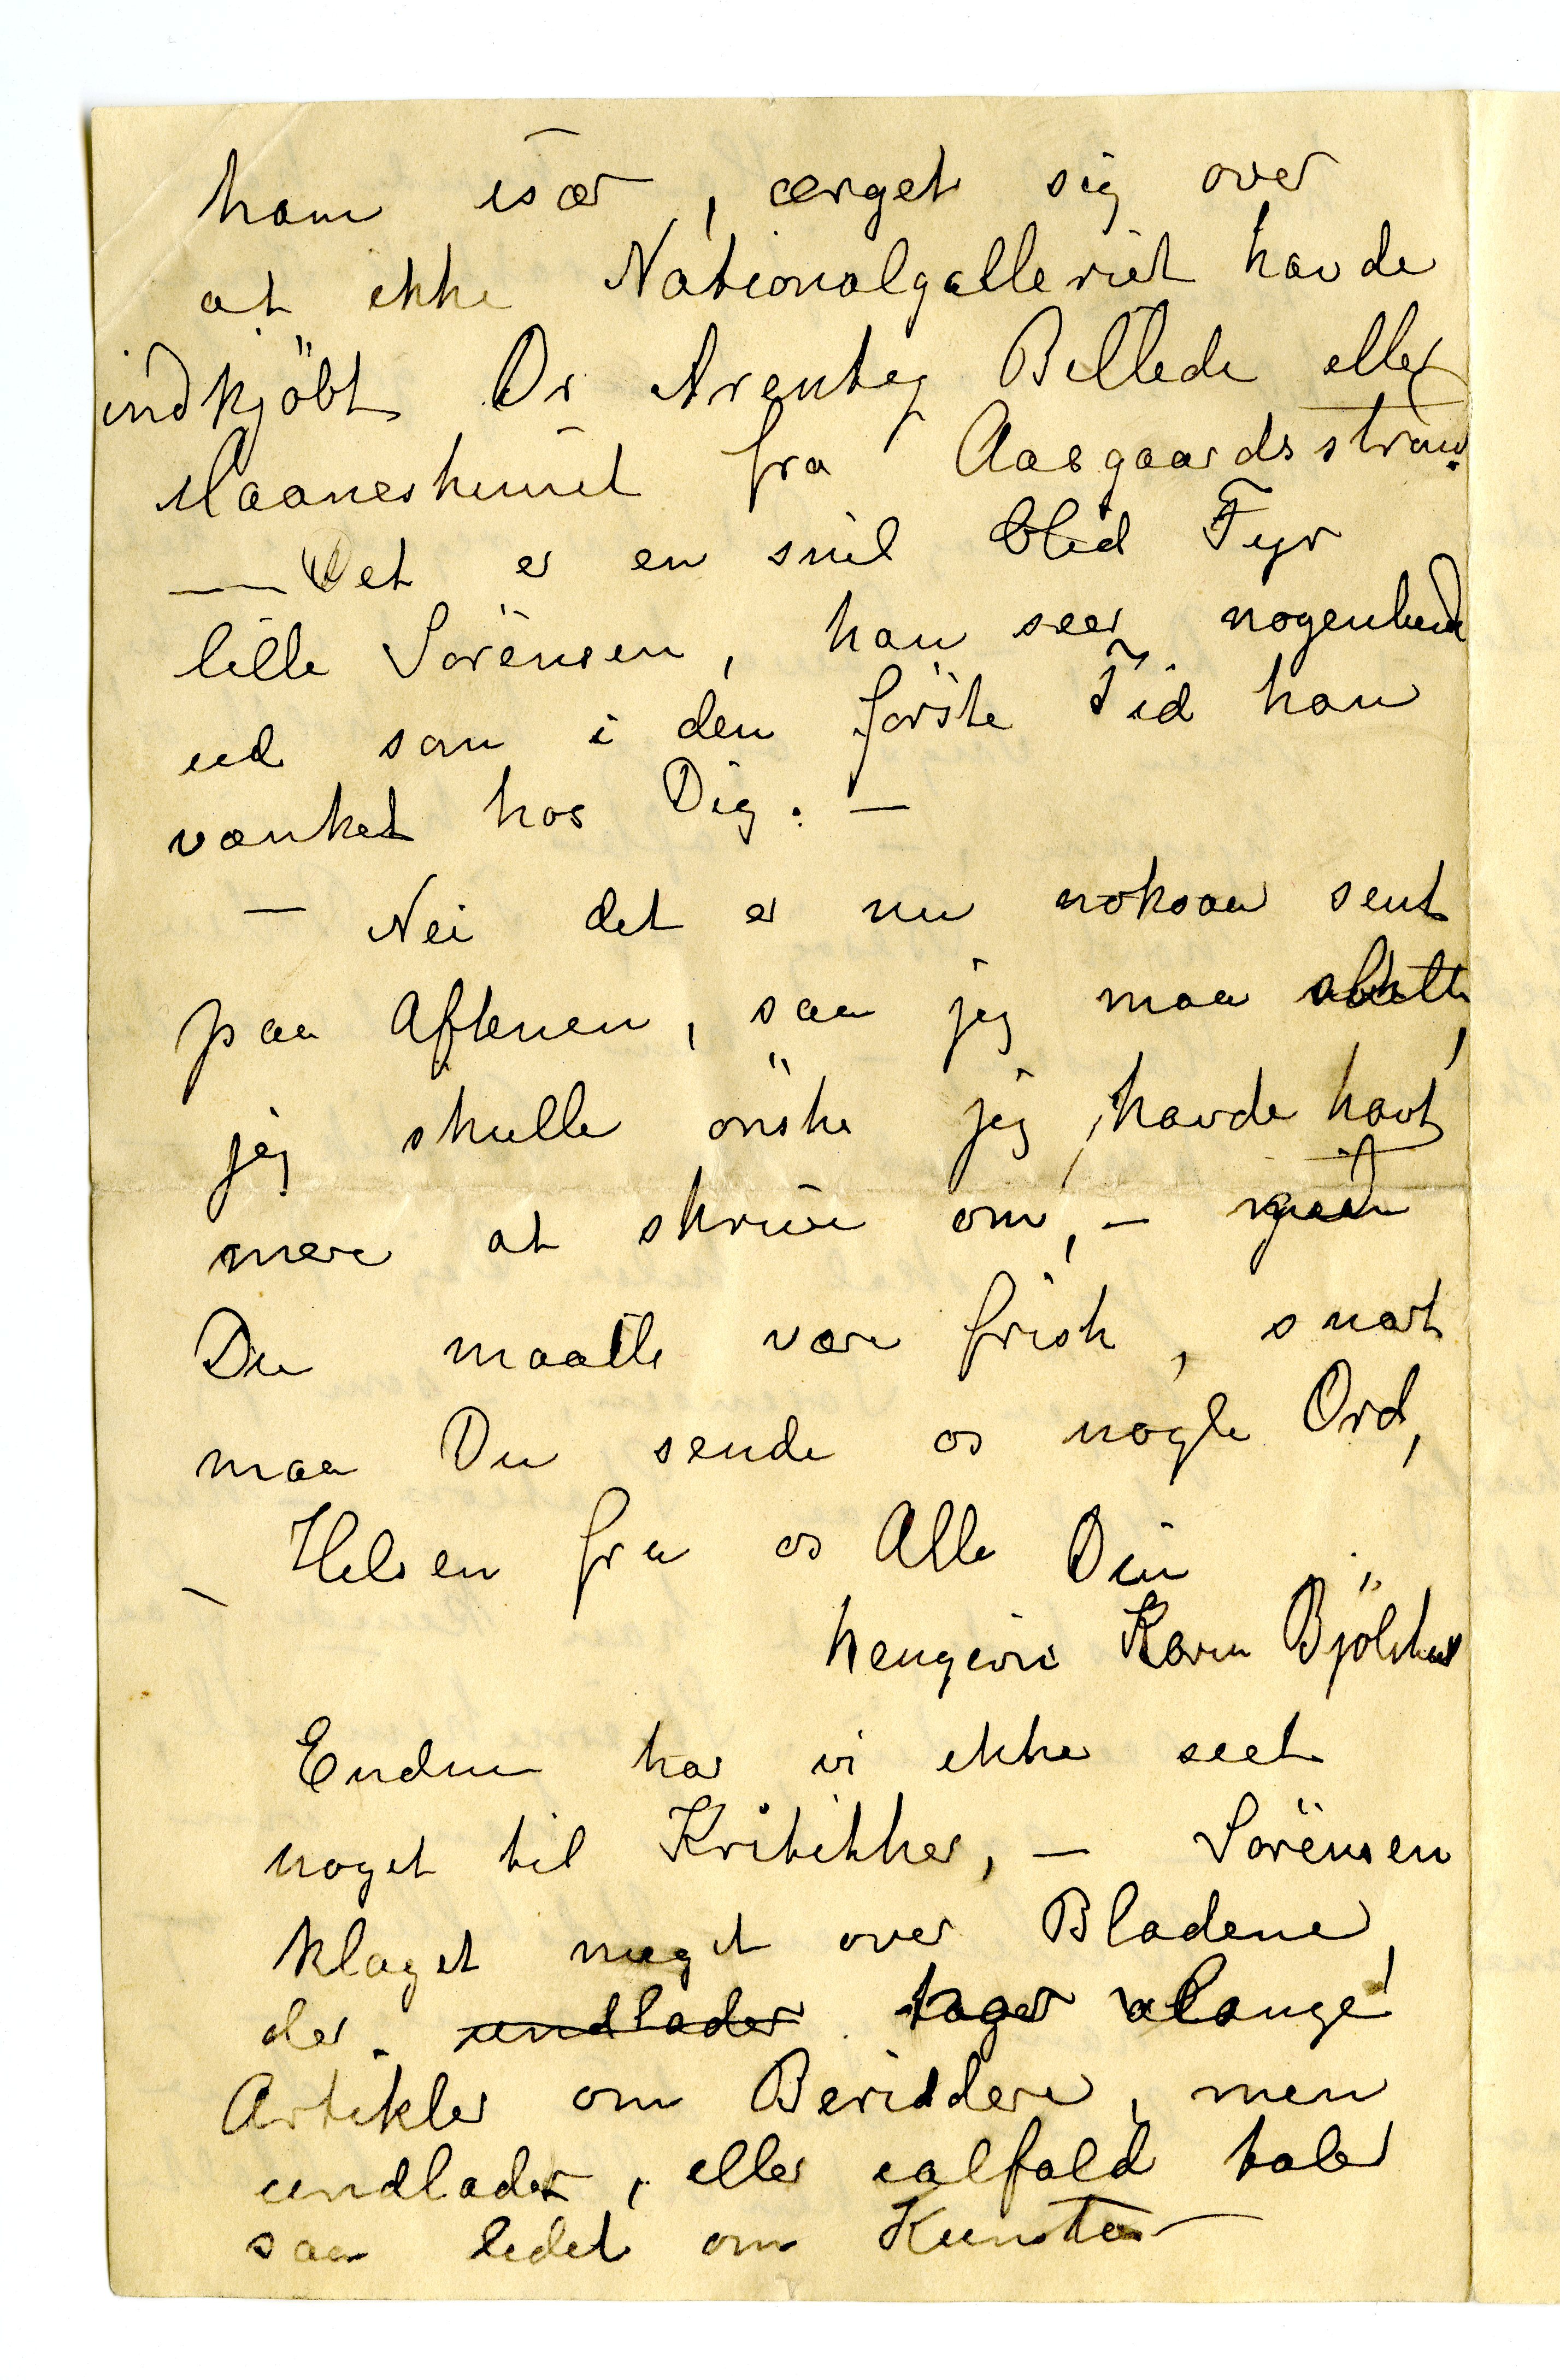 ham især, ærget sig over
at ikke Nationalgalleriet havde
indkjöbt Dr Arentz Billede eller
Maaneskinnet fra Aasgaardsstrand.
— Det er en snil blid Fyr
lille Sörensen, han seer nogenlunde
ud som i den förste Tid han
vanket hos Dig. —
— Nei det er nu noksaa sent
paa Aftenen, saa jeg maa slutte,
jeg skulle önske jeg havde havt
mere at skrive om, —
Du maatte være frisk, snart
maa Du sende os nogle Ord,
— Hilsen fra os Alle Din
hengivne Karen Bjölstad
Endnu har vi ikke seet
noget til Kritikker, — Sörensen
klaget meget over Bladene,
der undlader tager lange
Artikler om Beriddere, men
undlader, eller ialfald taler
saa lidet om Kunsten —